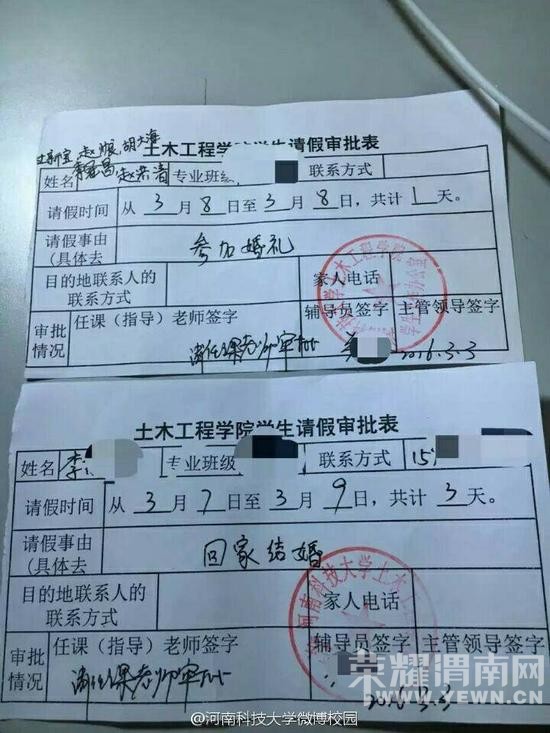 赵彪 胡大海
土木工程学院学生请假审批表
姓名 赵荣清 专业班级 联系方式
请假时间 从 3 月 8 日至 3 月 8 日，共计 1 天。
请假事由
(具体去
参加婚礼
目的地联系人的
联系方式
家人电话
审批
情况
任课（指导）老师签字 辅导员签字 主管领导签字
请任课老师审批 2016.3.3
土木工程学院学生请假审批表
姓名 李 专业班级 联系方式 15
请假时间 从 3 月 7 日至 3 月 9 日，共计 3 天。
请假事由
(具体去
回家结婚
目的地联系人的
联系方式
家人电话
河南科技大学土木工
审批
情况
任课（指导）老师签字 辅导员签字 主管领导签字
请任课老师审批 2016.3.3
荣耀渭南网
WWW.YEWN.CN
@河南科技大学微博校园